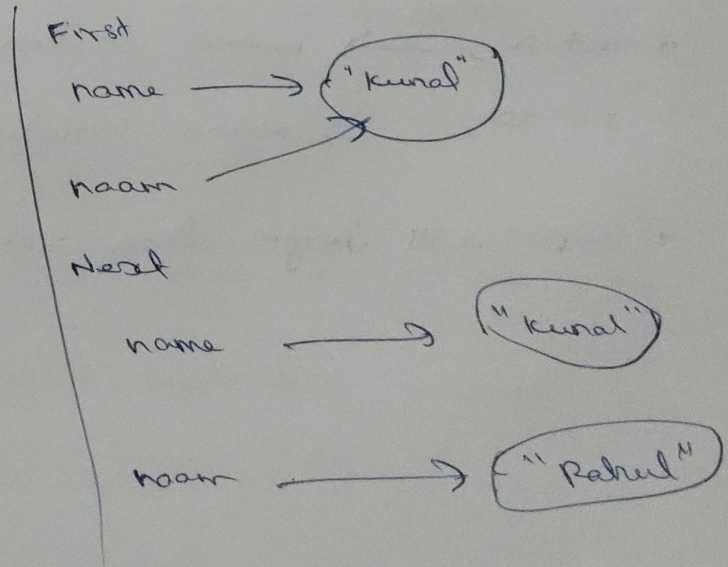 First
name → "Kunal"
naam
Next
name → "Kunal"
naam → "Rahul"